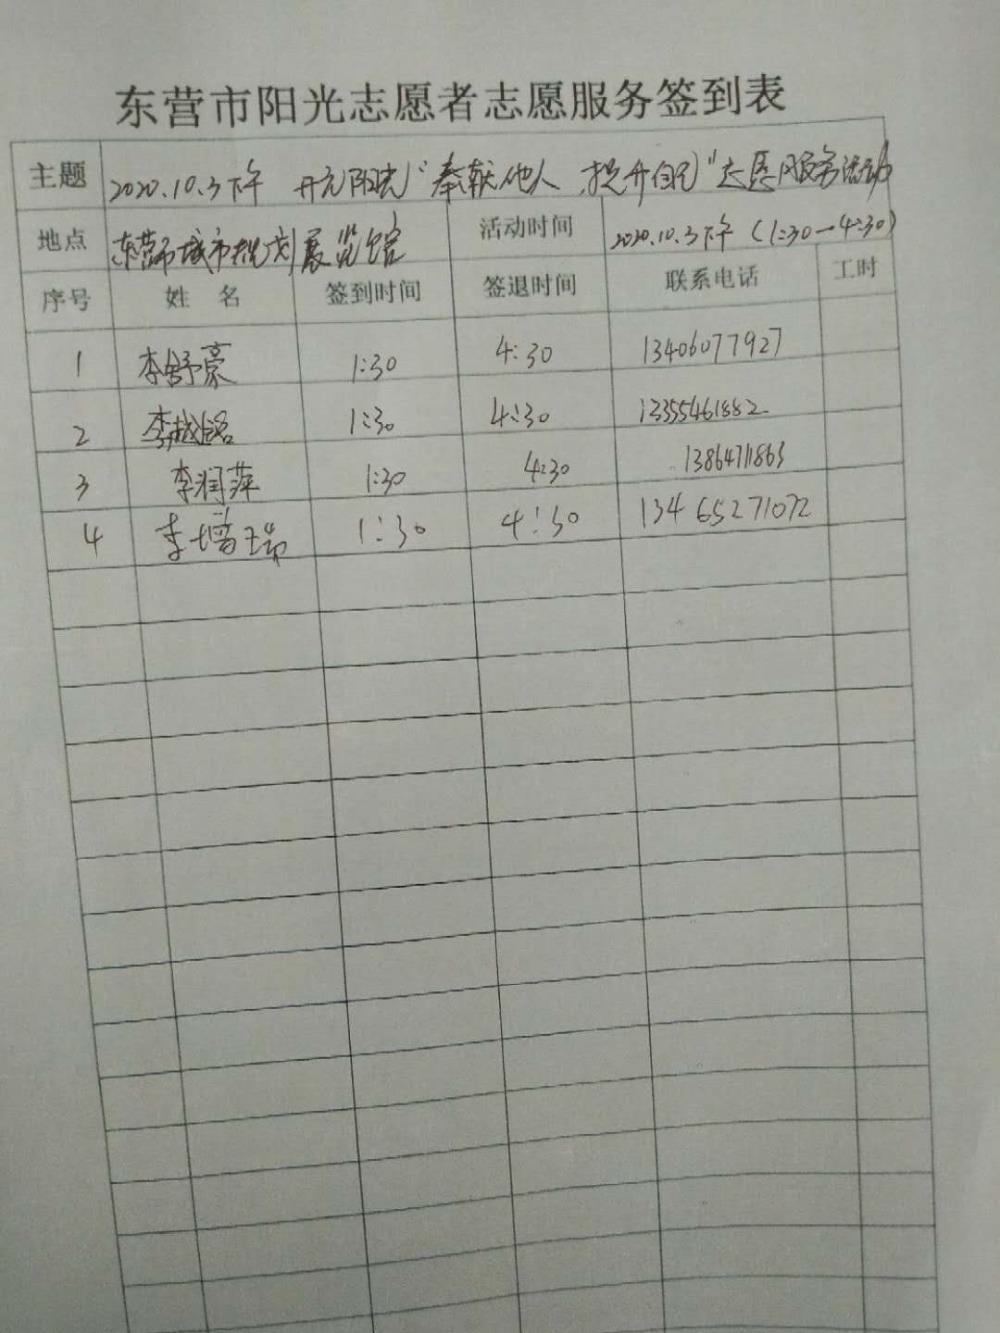 东营市阳光志愿者志愿服务签到表
主题 2020.10.3下午 开元阳光"奉献他人 提升自己"志愿服务活动
地点 东营市城市规划展览馆 活动时间 2020.10.3下午(1:30-4:30)
序号 姓名 签到时间 签退时间 联系电话 工时
1 李舒豪 1:30 4:30 13406077927
2 李越 1:30 4:30 13355461882
3 李润萍 1:30 4:30 13864711863
4 李 瑞 1:30 4:30 13465271072